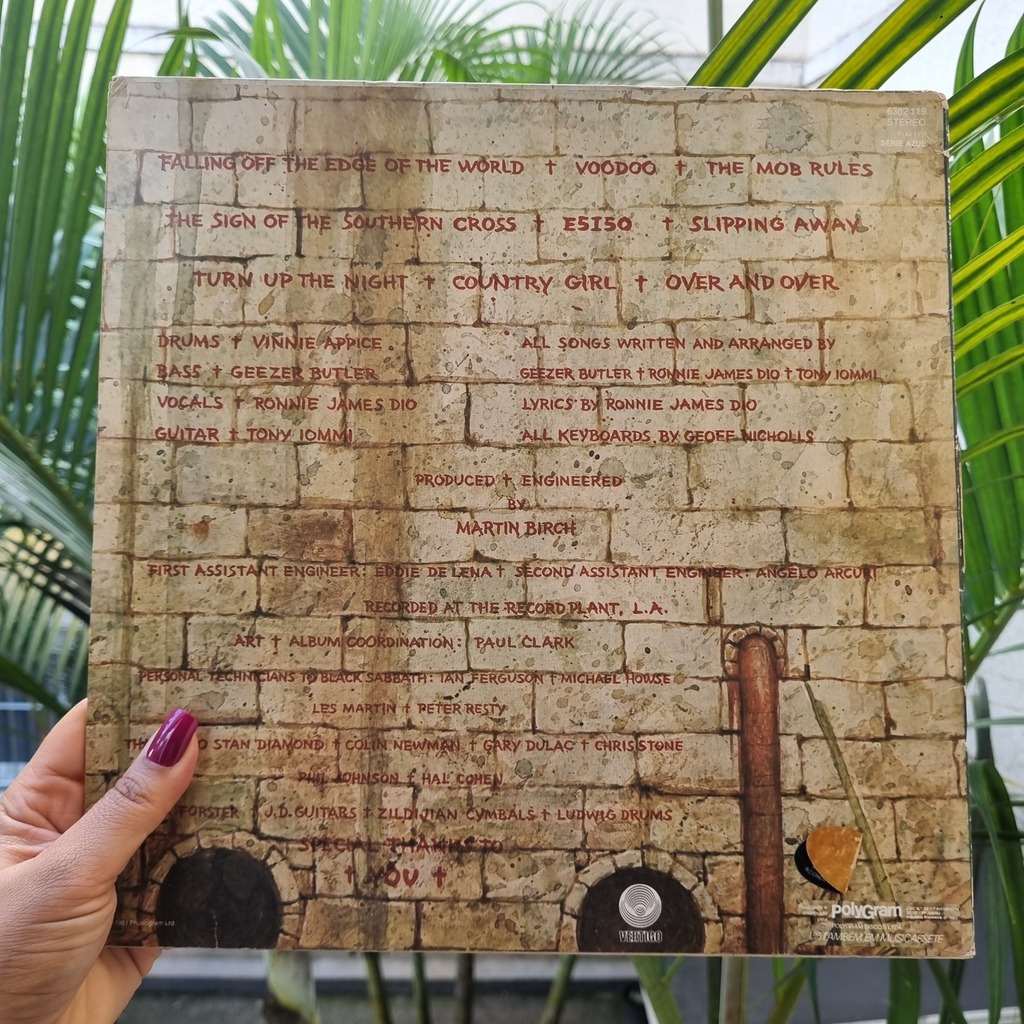 6302 119
STEREO
SERIE AZUL
FALLING OFF THE EDGE OF THE WORLD † VOODOO † THE MOB RULES
THE SIGN OF THE SOUTHERN CROSS † E5150 † SLIPPING AWAY
TURN UP THE NIGHT † COUNTRY GIRL † OVER AND OVER
DRUMS † VINNIE APPICE
BASS † GEEZER BUTLER
VOCALS † RONNIE JAMES DIO
GUITAR † TONY IOMMI
ALL SONGS WRITTEN AND ARRANGED BY
GEEZER BUTLER † RONNIE JAMES DIO † TONY IOMMI
LYRICS BY RONNIE JAMES DIO
ALL KEYBOARDS BY GEOFF NICHOLLS
PRODUCED † ENGINEERED
BY
MARTIN BIRCH
FIRST ASSISTANT ENGINEER: EDDIE DE LENA † SECOND ASSISTANT ENGINEER: ANGELO ARCURI
RECORDED AT THE RECORD PLANT, L.A.
ART † ALBUM COORDINATION: PAUL CLARK
PERSONAL TECHNICIANS TO BLACK SABBATH: IAN FERGUSON † MICHAEL HOWSE
LES MARTIN † PETER RESTY
STAN DIAMOND † COLIN NEWMAN † GARY DULAC † CHRIS STONE
PHIL JOHNSON † HAL COHEN
FORSTER † J.D. GUITARS † ZILDJIAN CYMBALS † LUDWIG DRUMS
SPECIAL THANKS TO
† YOU †
VERTIGO
polyGram
POLYGRAM DISCOS LTDA
TAMBÉM EM MUSICASSETE